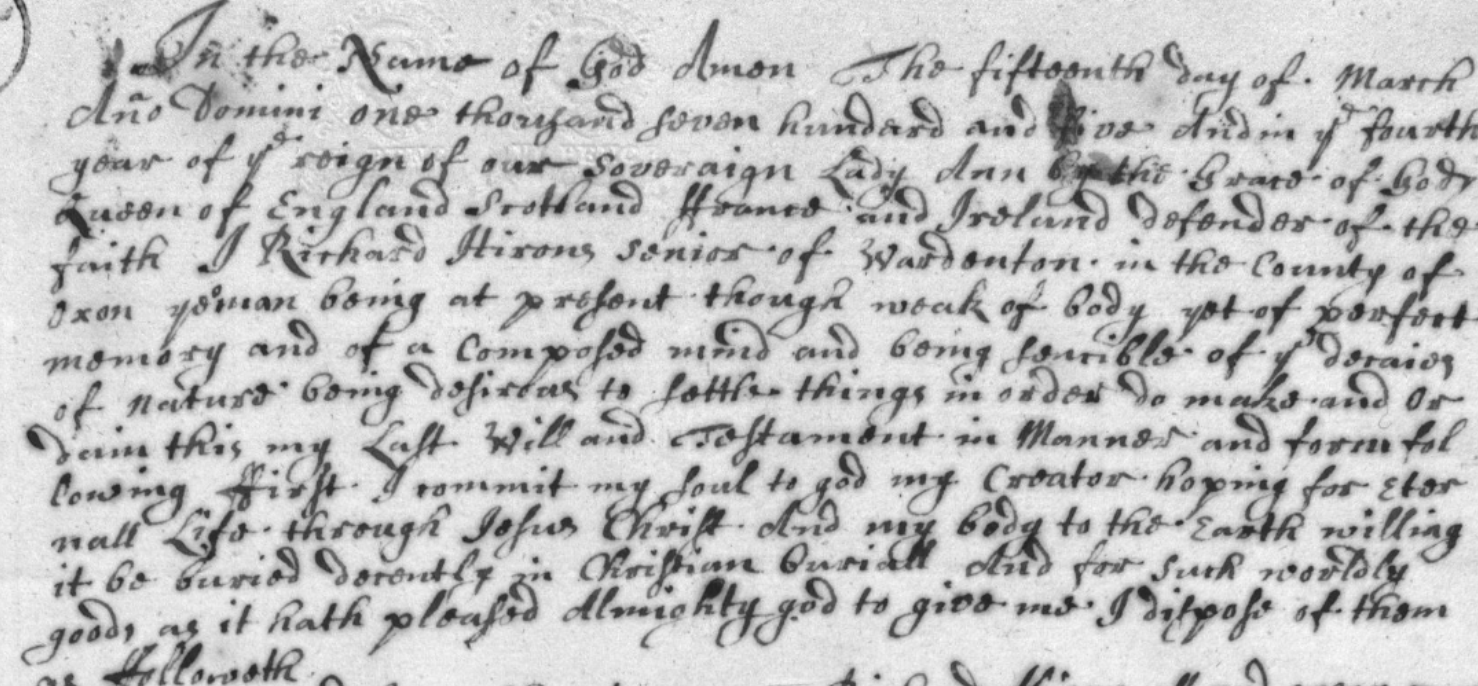 In the Name of God Amen The fifteenth day of March
Año Domini one thousand seven hundard and five And in yᵉ fourth
year of yᵉ reign of our Soveraign Lady Ann by the Grace of God
Queen of England Scotland ffrance and Ireland defender of the
faith I Richard Hirons senior of Wardenton in the County of
Oxon yeoman being at present though weak of body yet of perfect
memory and of a Composed mind and being sencible of yᵉ decaies
of nature being desirous to settle things in order do make and Or
dain this my Last Will and Testament in Manner and form fol
lowing ffirst I commit my soul to god my Creator hoping for Eter
nall Life through Jesus Christ And my body to the Earth willing
it be buried decently in Christian buriall And for such worldly
goods as it hath pleased Almighty god to give me I dispose of them
as ffolloweth